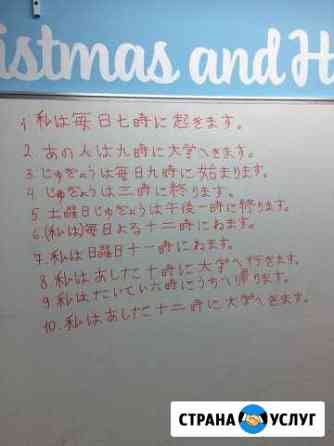 istmas and H
1. 私は毎日七時に起きます。
2. あの人は九時に大学へきます。
3. じゅぎょうは毎日九時に始まります。
4. じゅぎょうは三時に終ります。
5. 土曜日じゅぎょうは午後一時に終ります。
6. (私は)毎日よる十二時にねます。
7. 私は日曜日十一時にねます。
8. 私はあした十時に大学へ行きます。
9. 私はたいてい六時にうちへ帰ります。
10. 私はあした十二時に大学へきます。
СТРАНА УСЛУГ